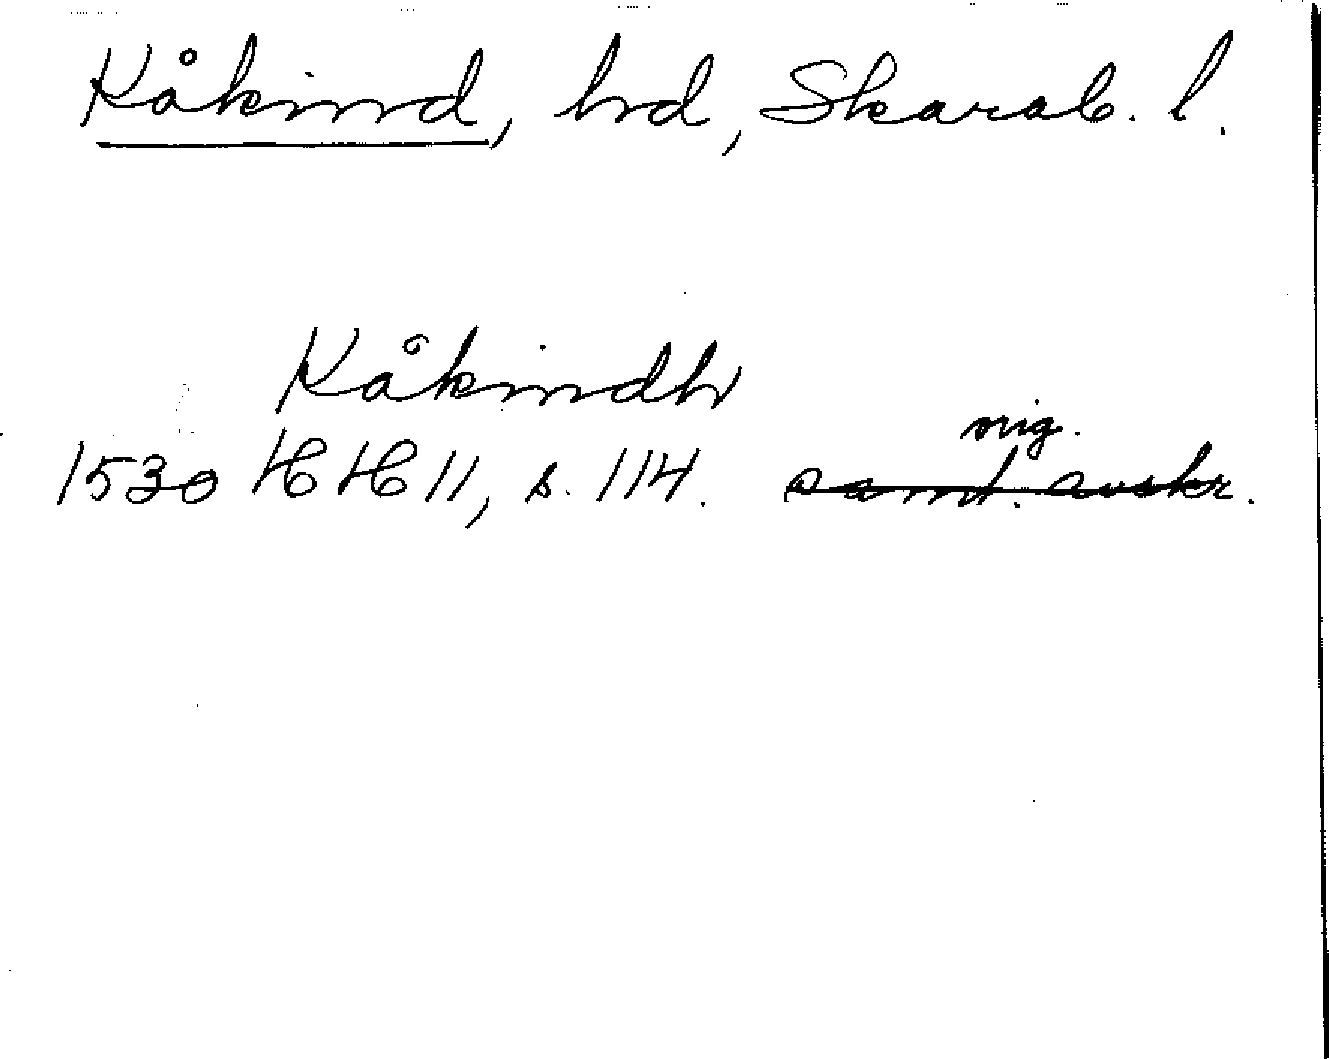 Kåkind, hd, Skarab. l.
Kåkindh
orig.
1530 HH 11, s. 114. samt. avskr.